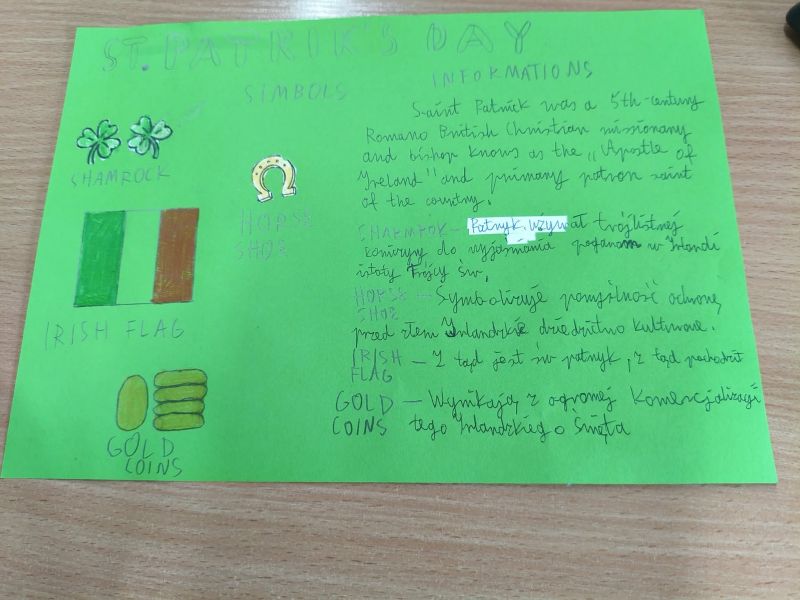 ST. PATRIK'S DAY
SIMBOLS
SHAMROCK
HORSE
SHOE
IRISH FLAG
GOLD
COINS
INFORMATIONS
Saint Patrick was a 5th-century
Romano British Christian missionary
and bishop knows as the „Apostle of
Ireland" and primary patron saint
of the country.
SHAMROK - Patryk używał trójlistnej
koniczyny do wyjaśniania poganom w Irlandi
istoty Trójcy Św.
HORSE — Symbolizuje pomyślność ochronę
SHOE
przed złem Irlandzkie dziedzictwo kulturowe.
IRISH — Z tąd jest św patryk, z tąd pochodził
FLAG
GOLD — Wynikają z ogromej komercjalizacji
COINS tego Irlandzkiego Święta